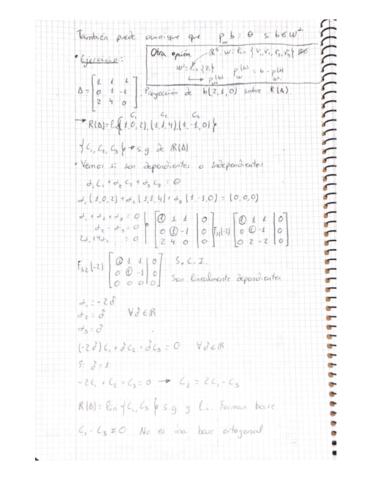 También puede ocurrir que p b = θ si b ∈ W⊥
Otra opción
• Ejercicio:
A = [1 1 1; 0 1 -1; 2 4 0] , Proyección de b(2,1,0) sobre R(A)
C₁ C₂ C₃
→ R(A) = {(1,0,2), (1,1,4), (1,-1,0)}
{C₁, C₂, C₃} → s.g de R(A)
• Vemos si son dependientes o independientes
α₁C₁ + α₂C₂ + α₃C₃ = 0
α₁(1,0,2) + α₂(1,1,4) + α₃(1,-1,0) = (0,0,0)
α₁ + α₂ + α₃ = 0
α₂ - α₃ = 0
2α₁ + 4α₂ = 0
[1 1 1 | 0; 0 1 -1 | 0; 2 4 0 | 0] F₃₁(-2) [1 1 1 | 0; 0 1 -1 | 0; 0 2 -2 | 0]
F₃₂(-2) [1 1 1 | 0; 0 1 -1 | 0; 0 0 0 | 0] S.C.I.
Son linealmente dependientes
α₁ = -2∂
α₂ = ∂ ∀∂∈ℝ
α₃ = ∂
(-2∂)C₁ + ∂C₂ + ∂C₃ = 0 ∀∂∈ℝ
Si ∂ = 1
-2C₁ + C₂ + C₃ = 0 → C₂ = 2C₁ - C₃
R(A) = {C₁, C₃} s.g y l.i. Forman base
C₁ · C₃ ≠ 0 No es una base ortogonal